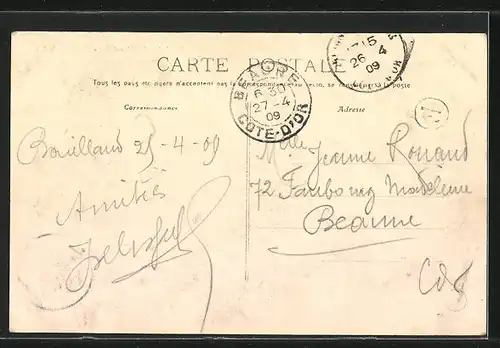 CARTE POSTALE
Tous les pays étrangers n'acceptent pas la correspondance au recto, se renseigner à la poste
Correspondance
Adresse
BEAUNE
6 30
27 - 4
09
COTE-D'OR
26 4
09
D'OR
Bouilland 25-4-09
Amitiés
Melle Jeanne
72 Faubourg Madeleine
Beaune